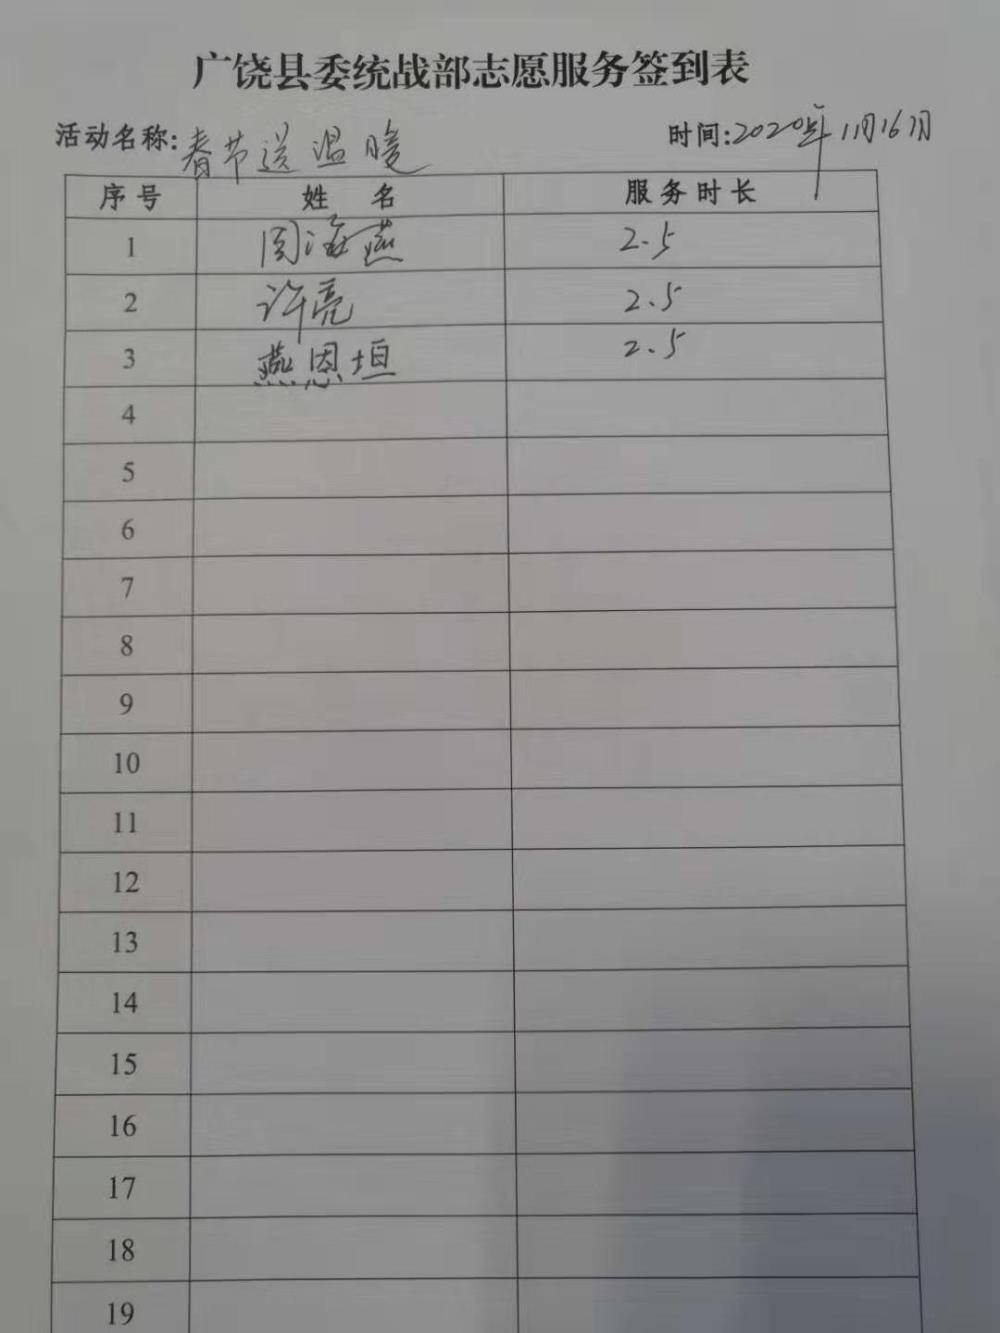 广饶县委统战部志愿服务签到表
活动名称:春节送温暖 时间:2020年11月16日
序号 姓名 服务时长
1 周海燕 2.5
2 许亮 2.5
3 燕恩垣 2.5
4
5
6
7
8
9
10
11
12
13
14
15
16
17
18
19